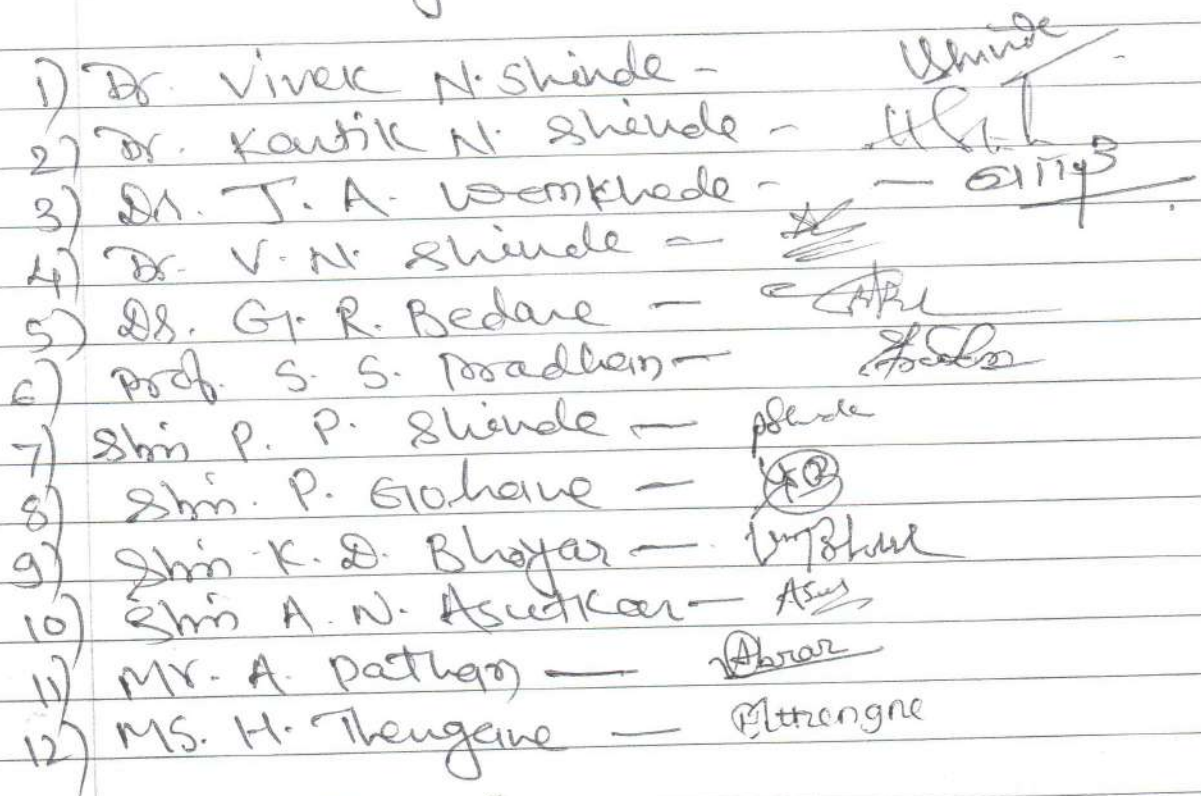 1) Dr. Vivek N. Shinde - Shinde
2) Dr. Kartik N. Shende -
3) Dr. J. A. Wankhede -
4) Dr. V. N. Shinde -
5) Dr. G. R. Bedare -
6) Prof. S. S. Pradhan -
7) Shri P. P. Shinde - pShinde
8) Shri. P. Gohane -
9) Shri K. D. Bhoyar -
10) Shri A. N. Asutkar - Asus
11) Mr. A. Pathan - Abrar
12) MS. H. Thengane - Hthengne